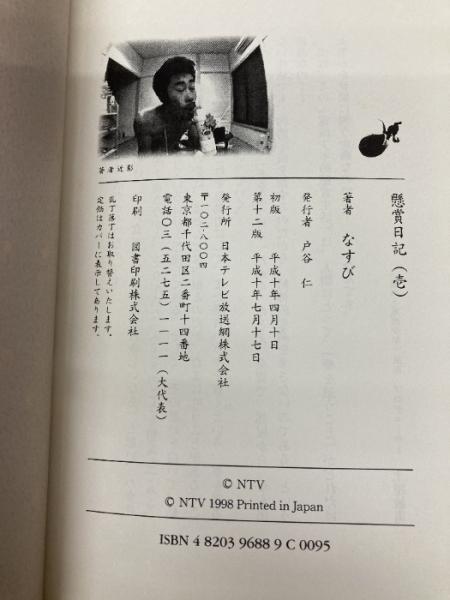 懸賞日記(壱)
著者 なすび
発行者 戸谷 仁
初版 平成十年四月十日
第十二版 平成十年七月十七日
発行所 日本テレビ放送網株式会社
〒一〇二-八〇〇四
東京都千代田区二番町十四番地
電話〇三(五二七五)一一一一(大代表)
印刷 図書印刷株式会社
乱丁落丁はお取り替えいたします。
定価はカバーに表示してあります。
著者近影
© NTV
© NTV 1998 Printed in Japan
ISBN 4 8203 9688 9 C 0095